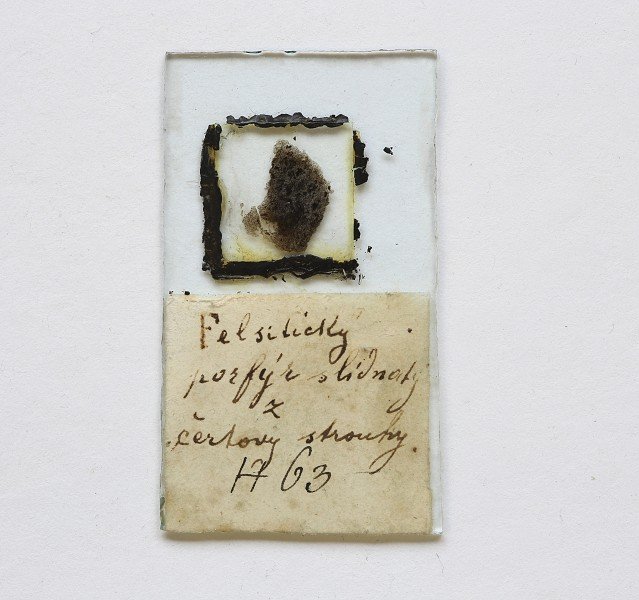 Felsitický
porfýr slídnatý
z
čertovy strouhy.
H 63